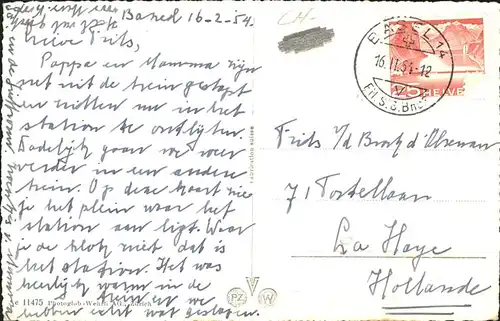 Basel 16-2-54.
Lieve Frits,
Pappa en Mamma zijn
net uit de trein gestapt
en zitten nu in het
station te ontbijten.
Dadelijk gaan we weer
verder in een andere
trein. Op deze kaart zie
je het plein waar het
station aan ligt. Waar
je de klok ziet dat is
het station. Het was
heerlijk warm in de
trein en we
hebben echt wat geslapen.
CH-
BASEL 14
16.II.54-12
V
75 HELVETIA
Frits v/d Brandt d'Elsenau
71 Tortellaan
La Haye
Hollande
e 11475 Photoglob-Wehrli AG., Zürich
PZ W